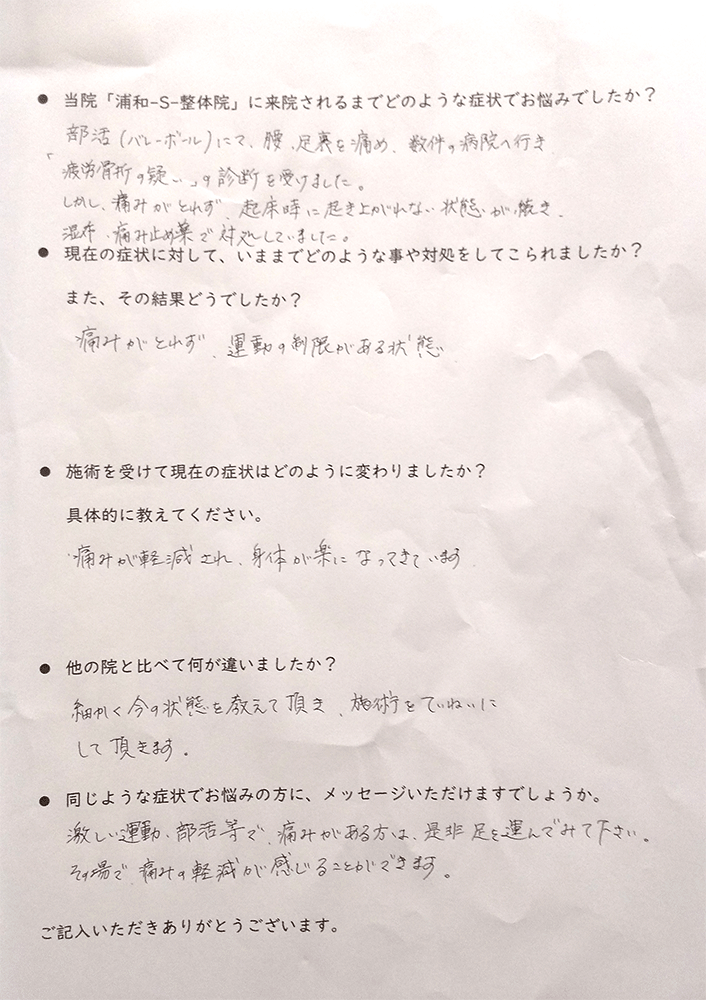 ● 当院「浦和-S-整体院」に来院されるまでどのような症状でお悩みでしたか？
部活(バレーボール)にて、腰、足裏を痛め、数件の病院へ行き
「疲労骨折の疑い」の診断を受けました。
しかし、痛みがとれず、起床時に起き上がれない状態が続き、
湿布、痛み止め薬で対処していました。
● 現在の症状に対して、いままでどのような事や対処をしてこられましたか？
また、その結果どうでしたか？
痛みがとれず、運動の制限がある状態
● 施術を受けて現在の症状はどのように変わりましたか？
具体的に教えてください。
痛みが軽減され、身体が楽になってきています
● 他の院と比べて何が違いましたか？
細かく今の状態を教えて頂き、施術をていねいに
して頂きます。
● 同じような症状でお悩みの方に、メッセージいただけますでしょうか。
激しい運動、部活等で、痛みがある方は、是非足を運んでみて下さい。
その場で、痛みの軽減が感じることができます。
ご記入いただきありがとうございます。